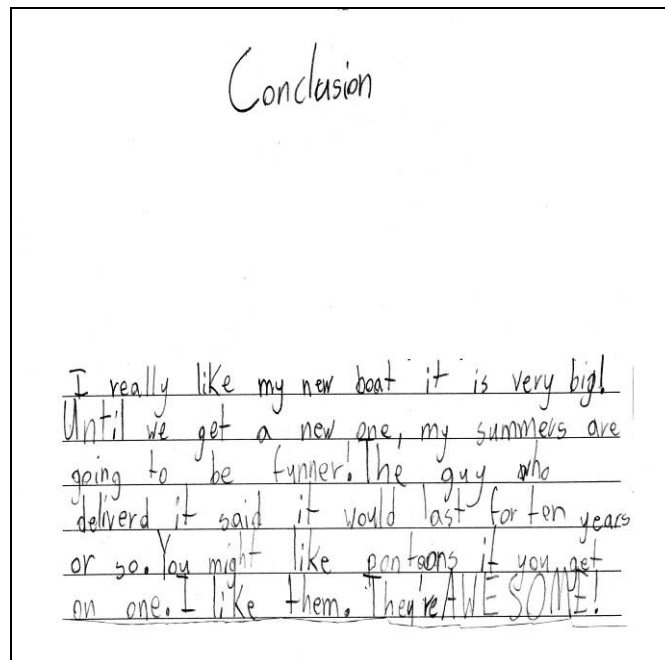 Conclusion
I really like my new boat it is very big!
Until we get a new one, my summers are
going to be funner! The guy who
deliverd it said it would last for ten years
or so. You might like pontoons if you get
on one. I like them. They're AWESOME!